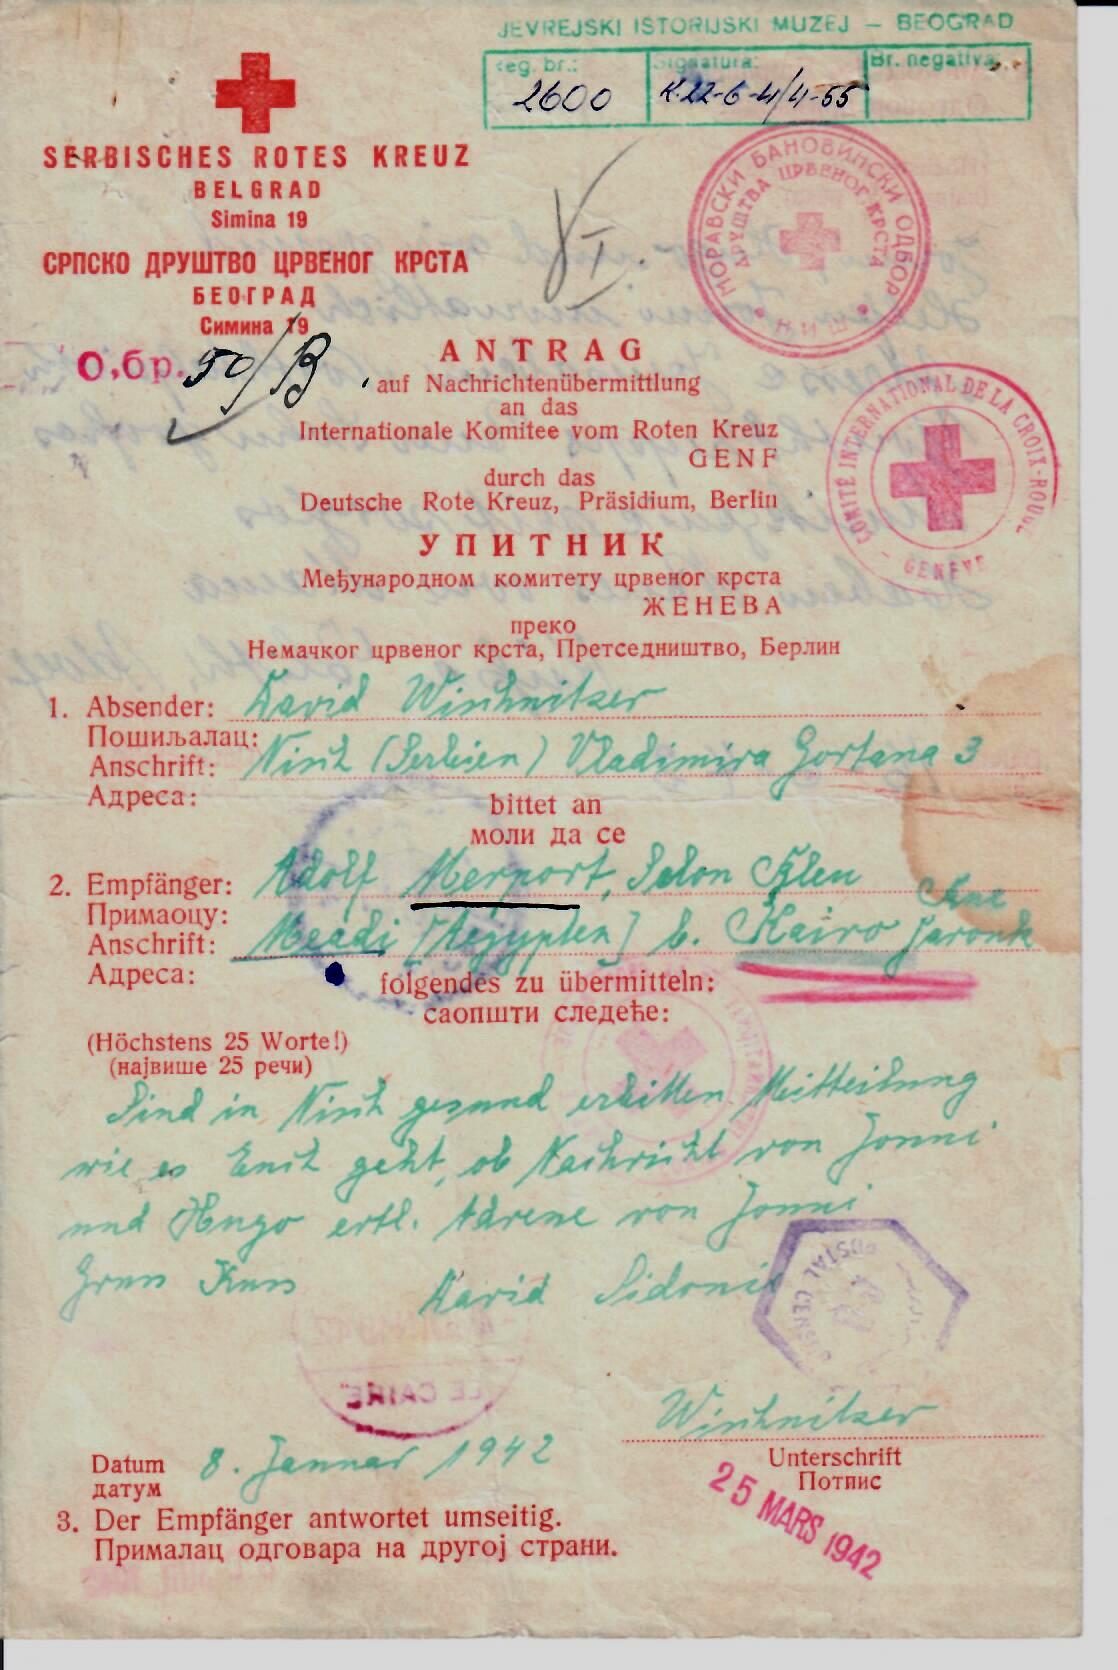 JEVREJSKI ISTORIJSKI MUZEJ — BEOGRAD
Reg. br.: Signatura: Br. negativa:
2600 K.22-6-4/4-55
SERBISCHES ROTES KREUZ
BELGRAD
Simina 19
СРПСКО ДРУШТВО ЦРВЕНОГ КРСТА
БЕОГРАД
Симина 19
МОРАВСКИ БАНОВИНСКИ ОДБОР
ДРУШТВА ЦРВЕНОГ КРСТА
НИШ
О.бр. 50/B
ANTRAG
auf Nachrichtenübermittlung
an das
Internationale Komitee vom Roten Kreuz
GENF
durch das
Deutsche Rote Kreuz, Präsidium, Berlin
COMITÉ INTERNATIONAL DE LA CROIX-ROUGE
- GENÈVE -
УПИТНИК
Међународном комитету црвеног крста
ЖЕНЕВА
преко
Немачког црвеног крста, Претседништво, Берлин
1. Absender: David Wischnitzer
Пошиљалац:
Anschrift: Nisch (Serbien) Vladimira Gortana 3
Адреса:
bittet an
моли да се
2. Empfänger: Adolf Merport, Salon
Примаоцу:
Anschrift: Meadi [Aegypten] b. Kairo
Адреса:
folgendes zu übermitteln:
саопшти следеће:
(Höchstens 25 Worte!)
(највише 25 речи)
Sind in Nisch gesund erbitten Mitteilung
wie es Euch geht, ob Nachricht von Jonni
und Hugo ertl. Adresse von Jonni
Gruss Kuss David Sidonie
POSTAL CENSOR
LE CAIRE
Wischnitzer
Datum 8. Januar 1942
датум
Unterschrift
Потпис
25 MARS 1942
3. Der Empfänger antwortet umseitig.
Прималац одговара на другој страни.